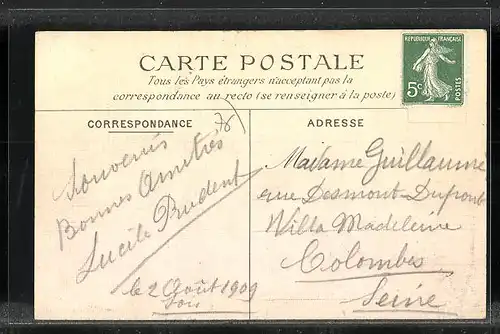 CARTE POSTALE
Tous les Pays étrangers n'acceptent pas la
correspondance au recto (se renseigner à la poste)
REPUBLIQUE FRANÇAISE
5c
POSTES
CORRESPONDANCE
78
Souvenirs
Bonnes Amitiés
Lucile Prudent
le 2 Août 1909
ADRESSE
Madame Guillaume
rue Desmont-Dupont
Villa Madeleine
Colombes
Seine